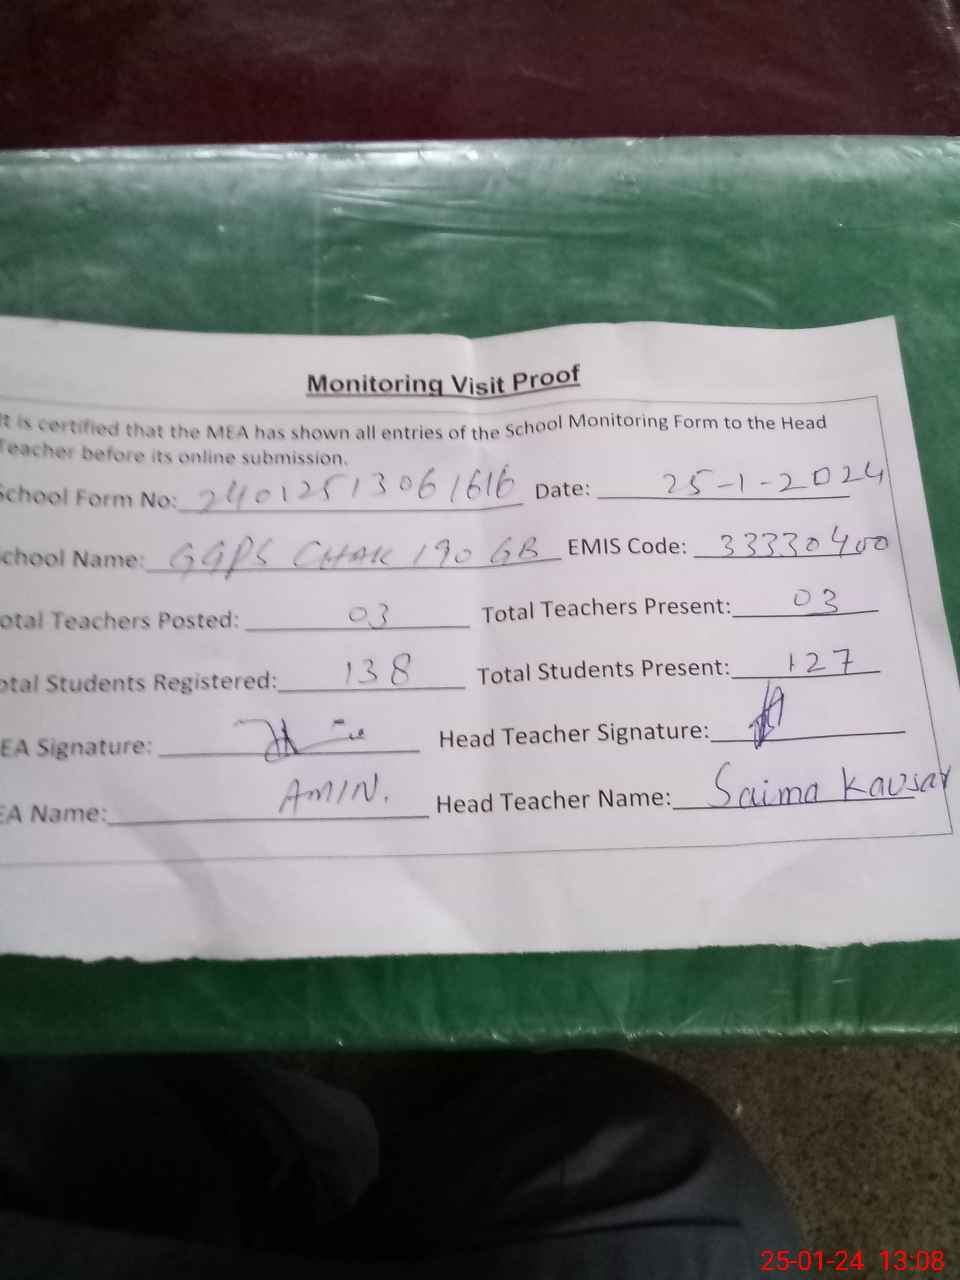 Monitoring Visit Proof
It is certified that the MEA has shown all entries of the School Monitoring Form to the Head
Teacher before its online submission.
School Form No: 24012513061616 Date: 25-1-2024
School Name: GGPS CHAK 190 GB EMIS Code: 33330400
otal Teachers Posted: 03 Total Teachers Present: 03
otal Students Registered: 138 Total Students Present: 127
EA Signature: Head Teacher Signature:
EA Name: AMIN. Head Teacher Name: Saima Kausar
25-01-24 13:08